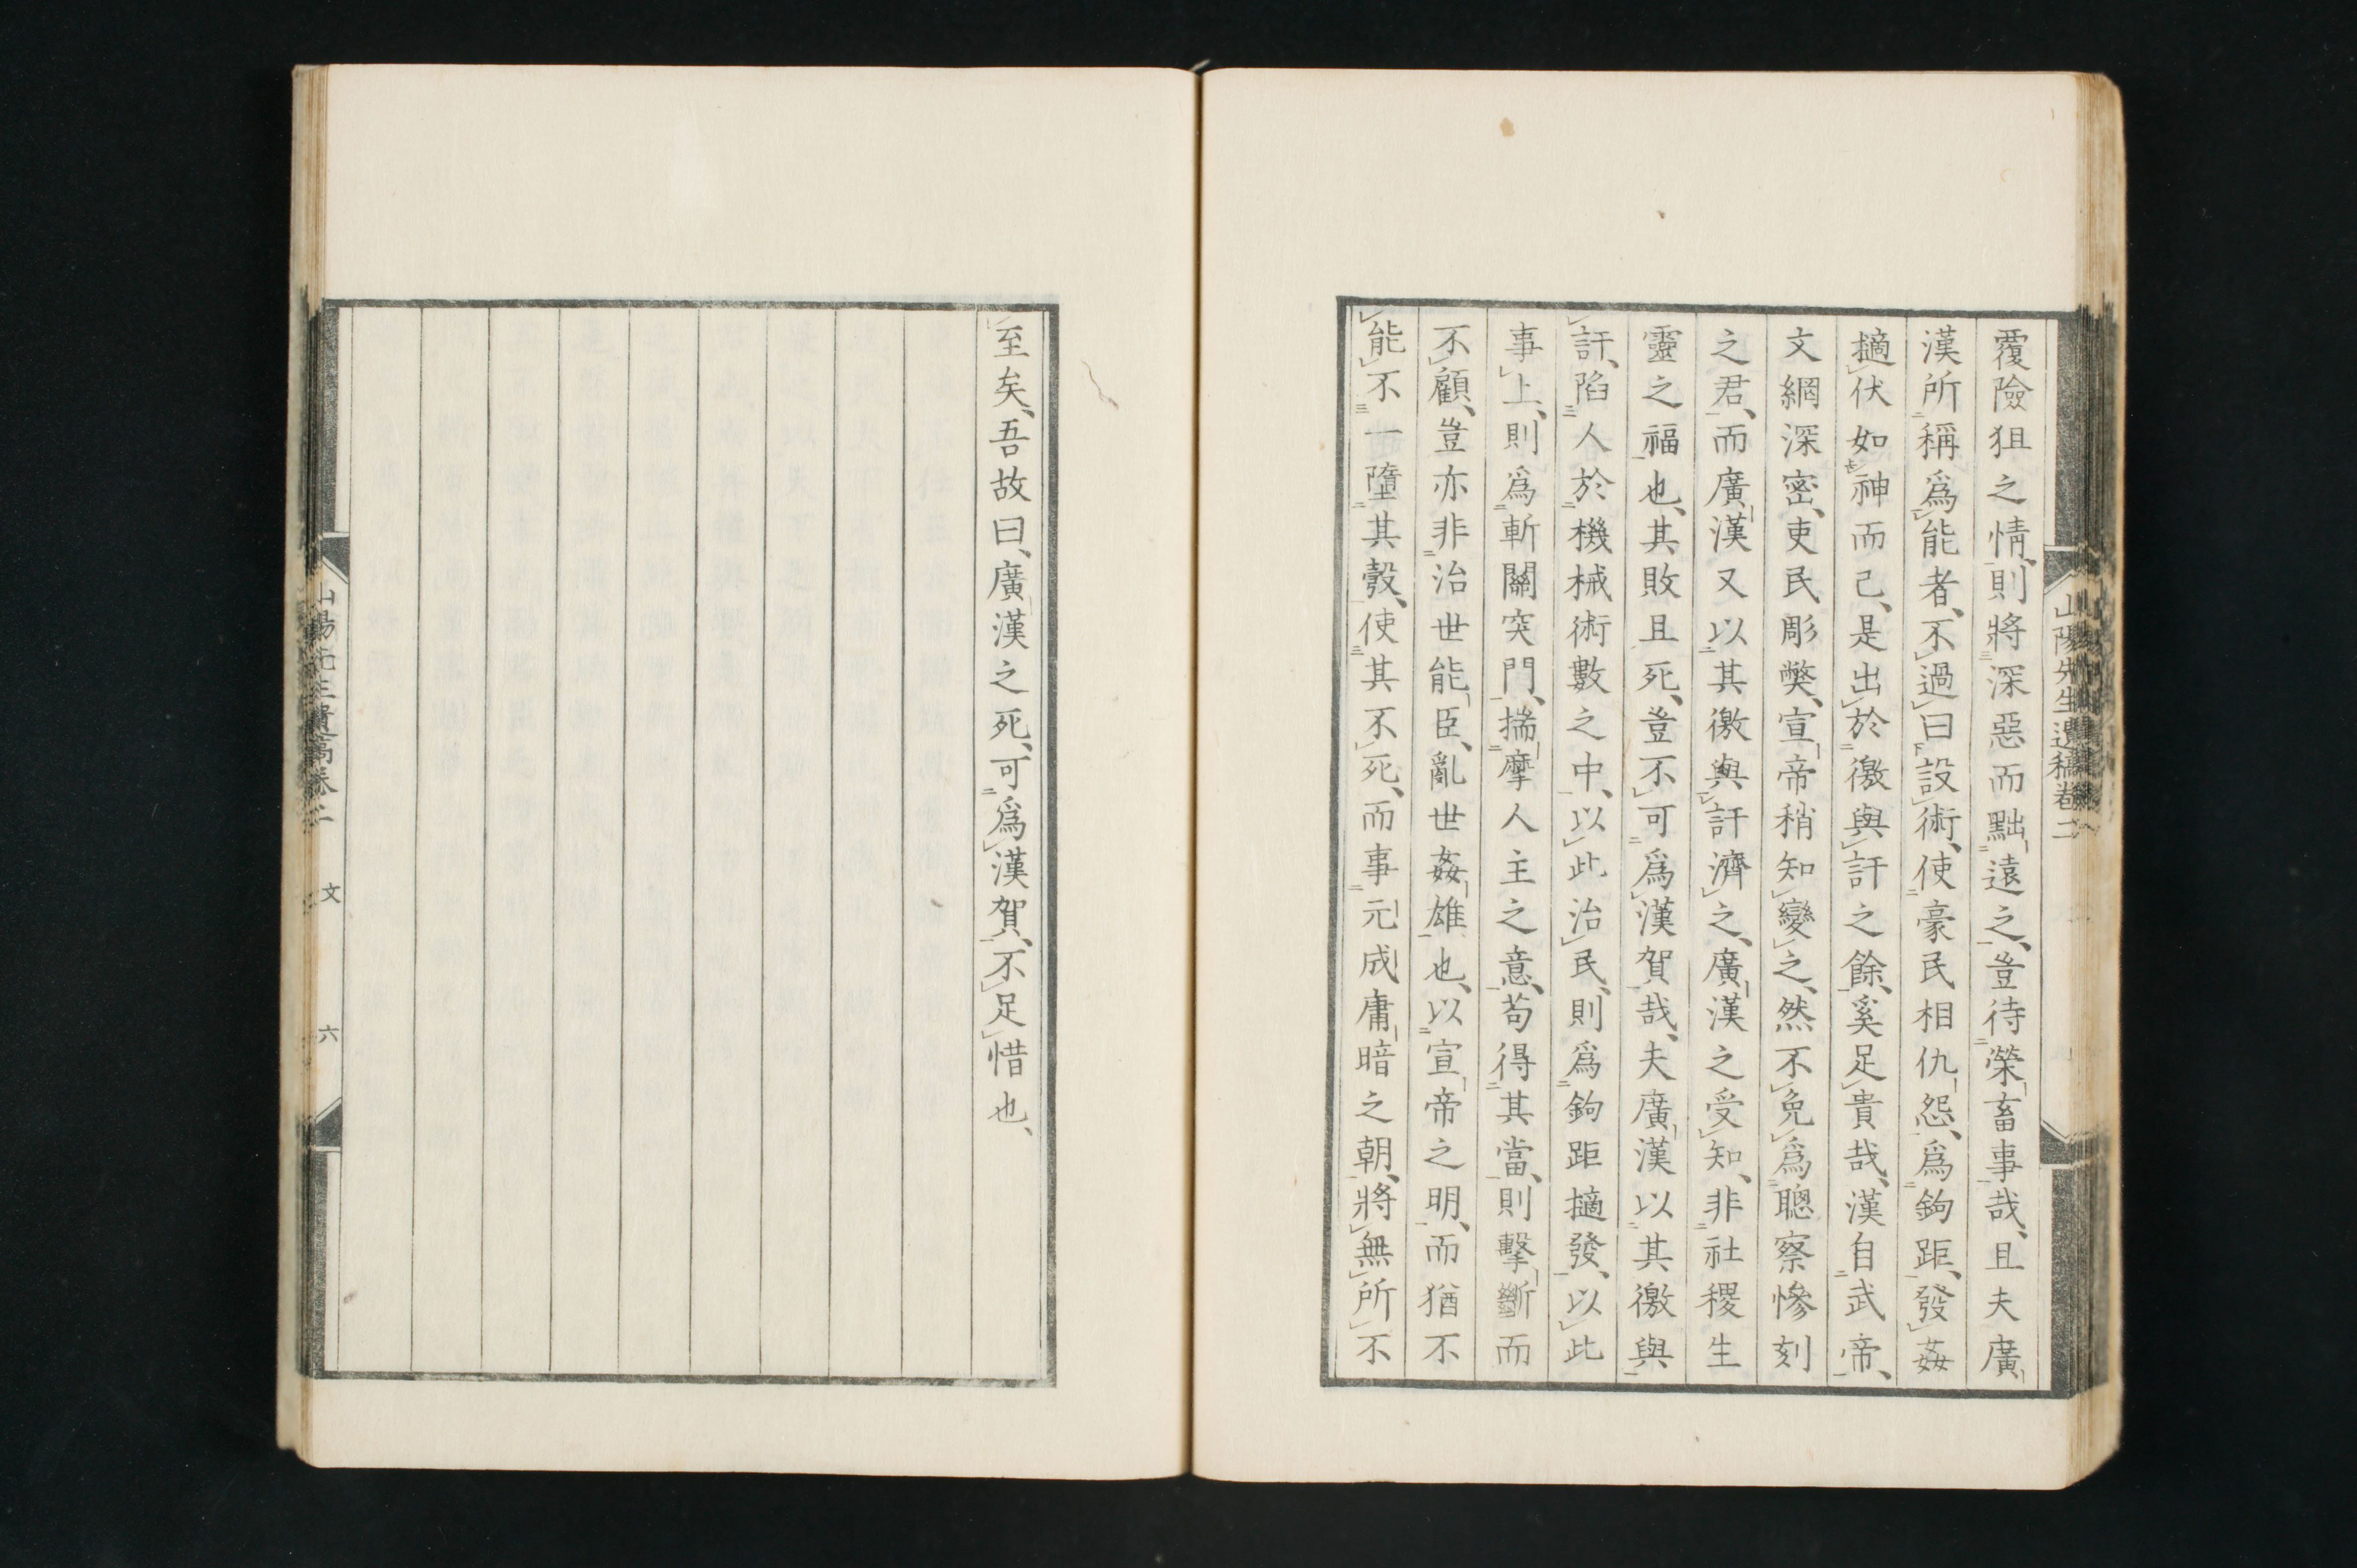 山陽先生遺稿卷二
覆險狙之情、則將深惡而黜遠之、豈待榮畜事哉、且夫廣
漢所稱爲能者、不過曰設術、使豪民相仇怨、爲鉤距、發姦
擿伏如神而已、是出於徼與訐之餘、奚足貴哉、漢自武帝、
文網深密、吏民彫弊、宣帝稍知變之、然不免爲聰察慘刻
之君、而廣漢又以其徼與訐濟之、廣漢之受知、非社稷生
靈之福也、其敗且死、豈不可爲漢賀哉、夫廣漢以其徼與
訐、陷人於機械術數之中、以此治民、則爲鉤距擿發、以此
事上、則爲斬關突門、揣摩人主之意、苟得其當、則擊斷而
不顧、豈亦非治世能臣、亂世姦雄也、以宣帝之明、而猶不
能不一墮其彀、使其不死、而事元成庸暗之朝、將無所不
至矣、吾故曰、廣漢之死、可爲漢賀、不足惜也、
山陽先生遺稿卷二 文 六